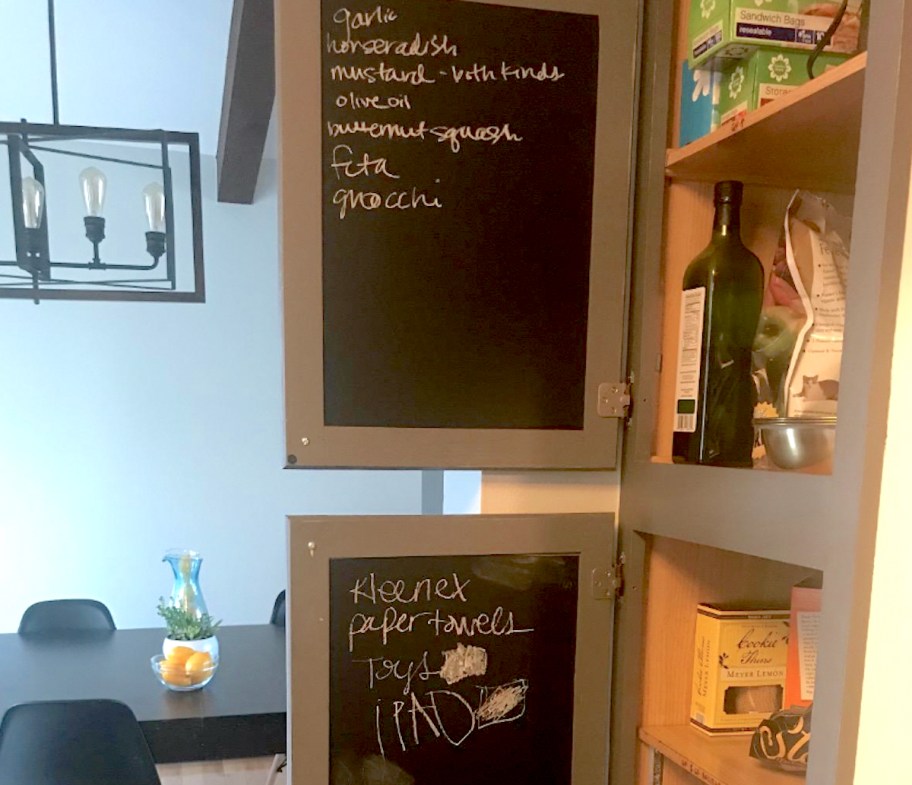 garlic
horseradish
mustard - both kinds
olive oil
butternut squash
feta
gnocchi
Kleenex
paper towels
Toys
iPAD
Sandwich Bags
resealable
Cookie
Thins
MEYER LEMON